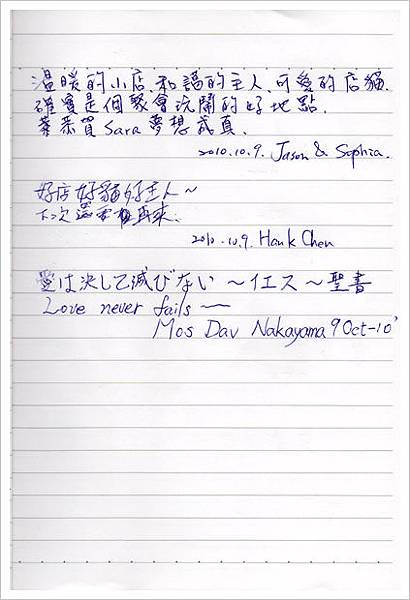 溫暖的小店、和諧的主人、可愛的店貓、
確實是個聚會洗鬧的好地點.
恭賀 Sara 夢想成真.
2010.10.9. Jason & Sophia.
好店好貓好主人~
下次還要再來.
2010.10.9. Hank Chen
愛は決して滅びない ~イエス~聖書
Love never fails ~
Mos Dav Nakayama 9 Oct-10'